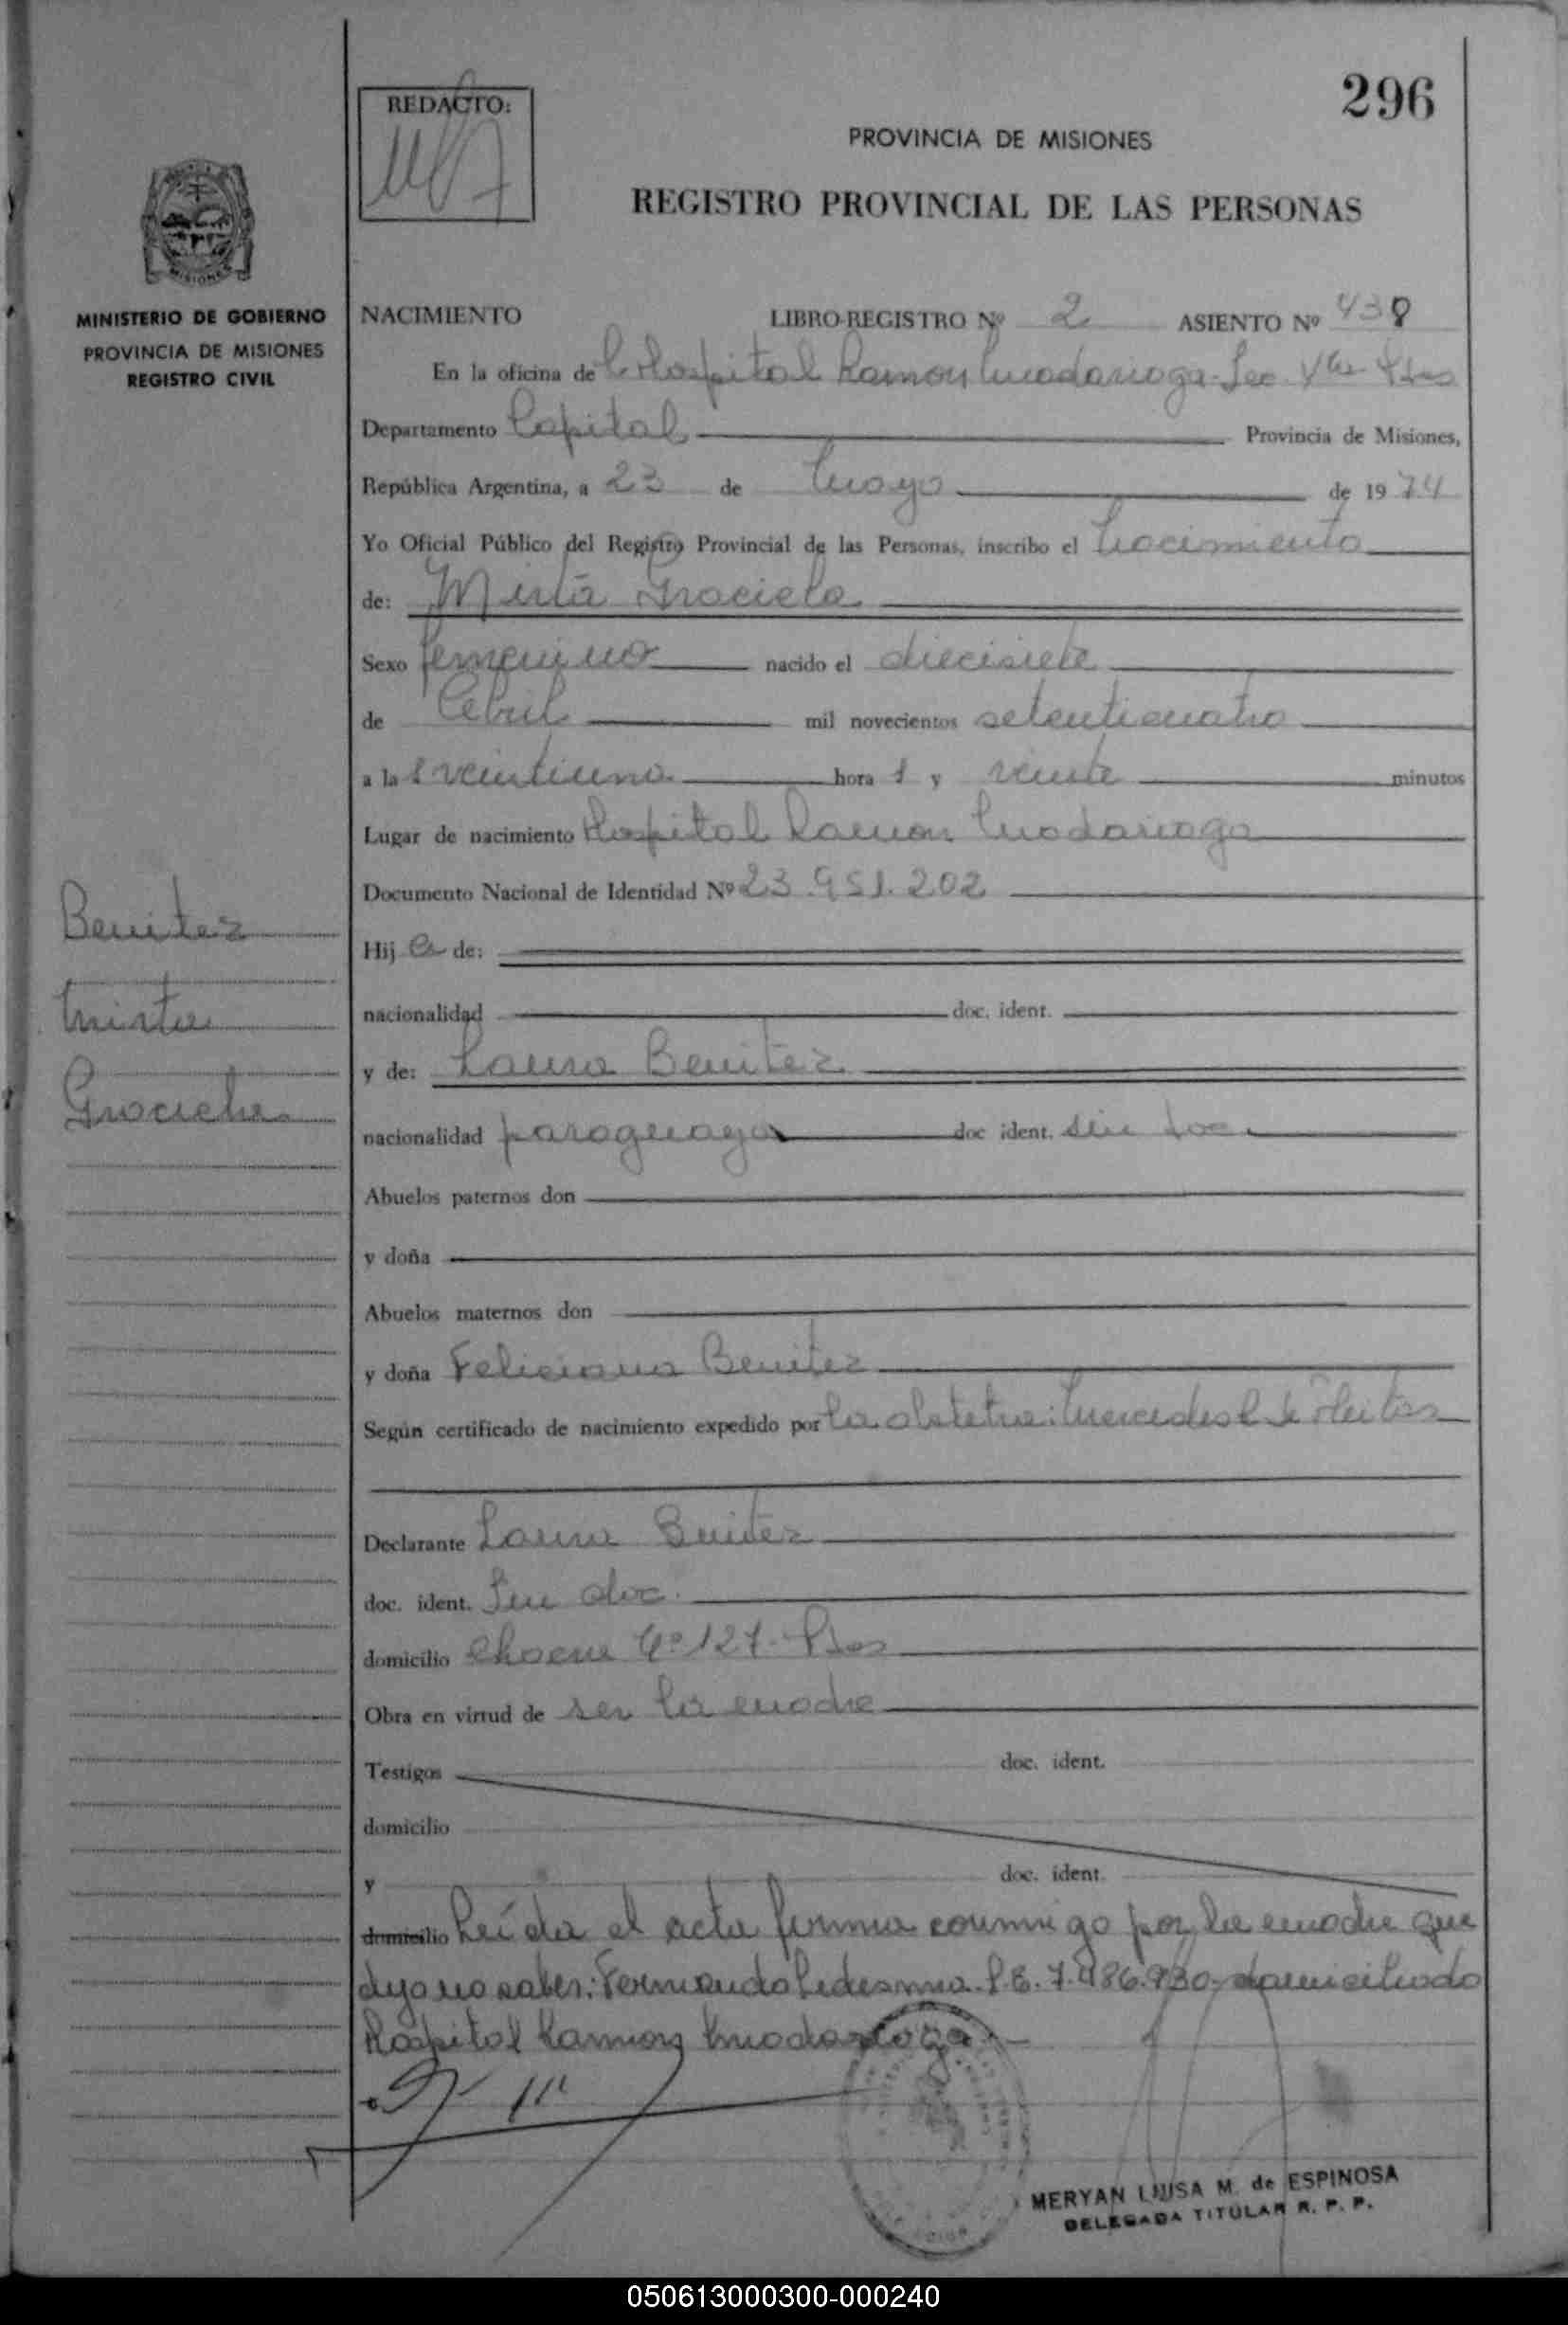 296
REDACTO:
PROVINCIA DE MISIONES
REGISTRO PROVINCIAL DE LAS PERSONAS
MISIONES
MINISTERIO DE GOBIERNO
PROVINCIA DE MISIONES
REGISTRO CIVIL
NACIMIENTO LIBRO-REGISTRO Nº 2 ASIENTO Nº 438
En la oficina de Hospital Ramon Madariaga Sec.
Departamento Capital Provincia de Misiones,
República Argentina, a 23 de Mayo de 1974
Yo Oficial Público del Registro Provincial de las Personas, inscribo el Nacimiento
de: Mirta Graciela
Sexo femenino nacido el diecisiete
de Abril mil novecientos setenticuatro
a las veintiuna horas y veinte minutos
Lugar de nacimiento Hospital Ramon Madariaga
Documento Nacional de Identidad Nº 23.951.202
Hija de:
nacionalidad doc. ident.
y de: Laura Benitez
nacionalidad paraguaya doc ident. sin doc.
Benitez
Mirta
Graciela
Abuelos paternos don
y doña
Abuelos maternos don
y doña Feliciana Benitez
Según certificado de nacimiento expedido por la obstetra: Mercedes de Fleitas
Declarante Laura Benitez
doc. ident. Sin doc.
domicilio Nº 127- Pdas
Obra en virtud de ser la madre
Testigos doc. ident.
domicilio
y doc. ident.
domicilio Leída el acta firma conmigo por la madre que
dijo no saber: Fernando Ledesma. L.E. 7.486.930- domiciliado
Hospital Ramon Madariaga.
MERYAN LUISA M. de ESPINOSA
DELEGADA TITULAR R. P. P.
050613000300-000240